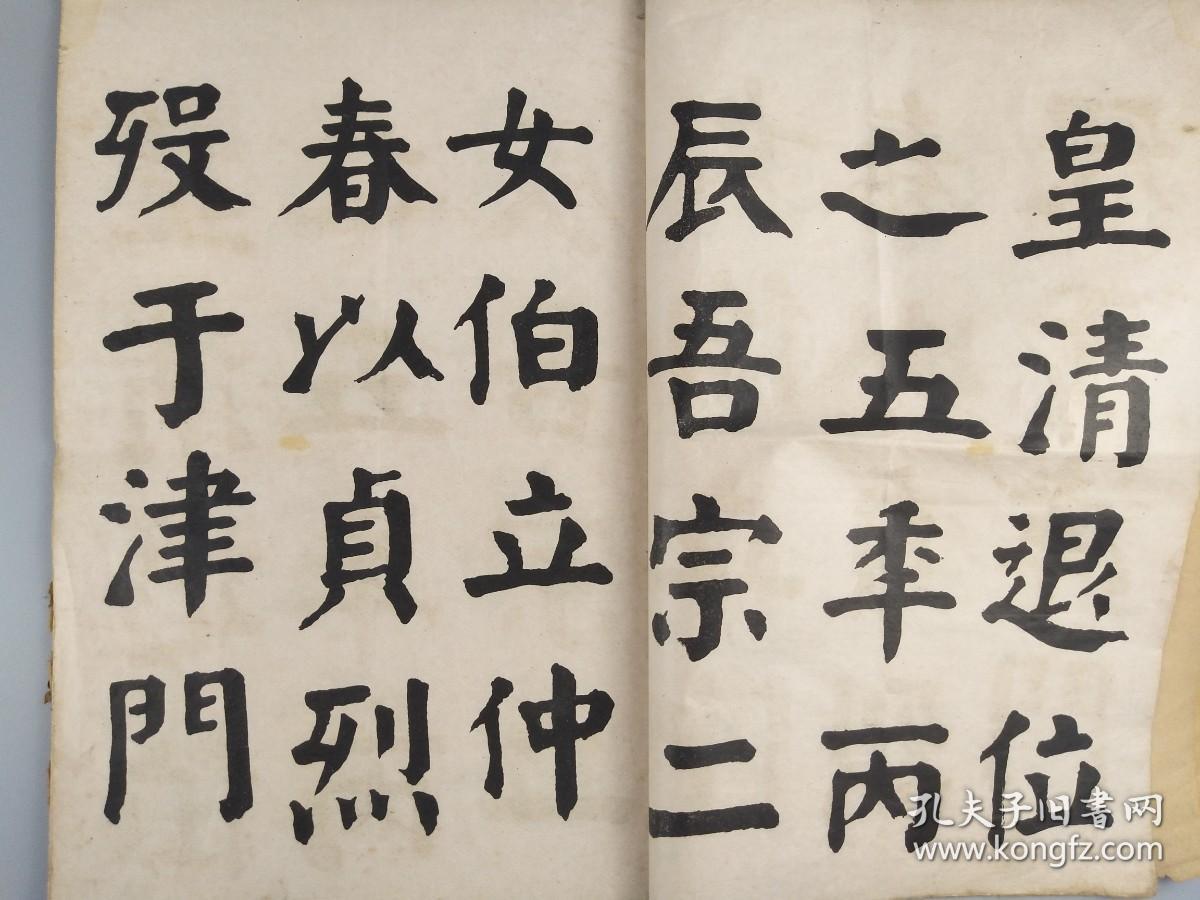 皇清退位
之五年丙
辰吾宗二
女伯立仲
春以貞烈
歿于津門
孔夫子旧書网
www.kongfz.com